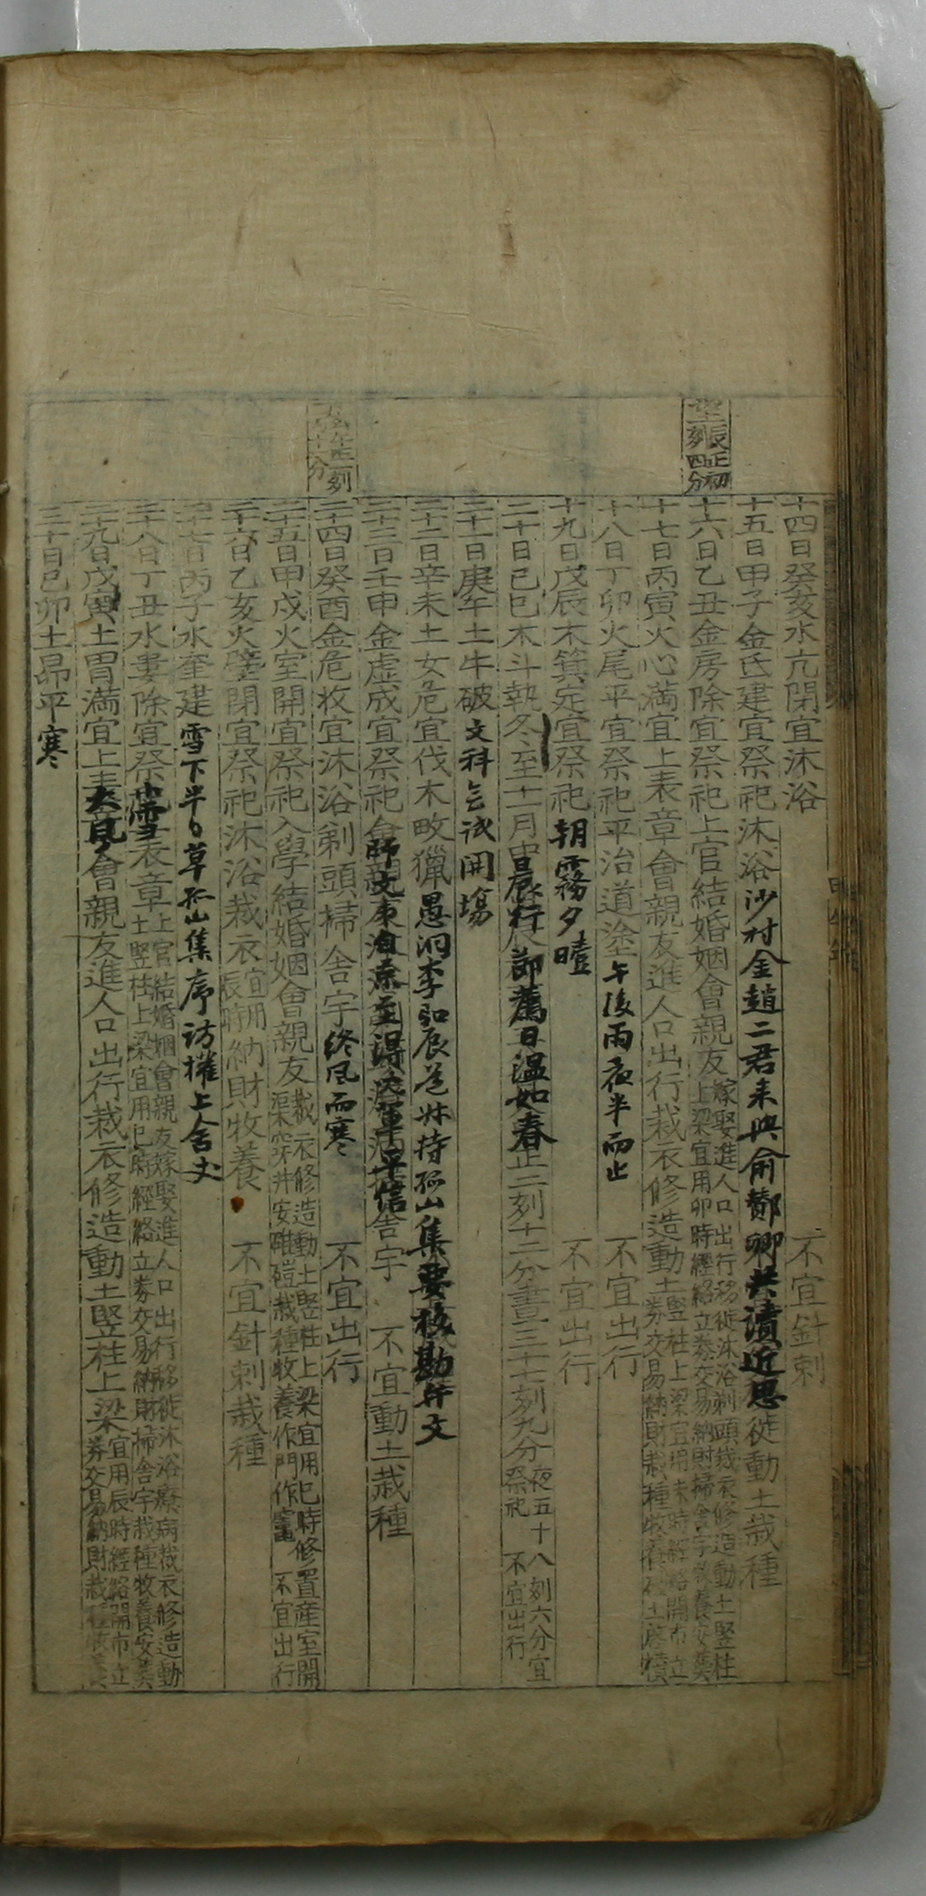 望辰正初
刻四分
十四日癸亥水亢閉宜沐浴 不宜針刺
十五日甲子金氐建宜祭祀沐浴 沙村金趙二君來與俞鄼卿共讀近思 徙動土栽種
十六日乙丑金房除宜祭祀上官結婚姻會親友嫁娶進人口出行移徙沐浴剃頭裁衣修造動土竪柱
上梁宜用卯時經絡立券交易納財掃舍宇牧養安葬
十七日丙寅火心滿宜上表章會親友進人口出行裁衣修造動土竪柱上梁宜用未時經絡開市立
券交易納財栽種牧養
十八日丁卯火尾平宜祭祀平治道塗 午後雨夜半而止 不宜出行
十九日戊辰木箕定宜祭祀 朝霧夕曀 不宜出行
二十日己巳木斗執冬至十一月 晨行節薦日溫如春 正三刻十二分晝三十七刻九分夜五十八刻六分宜
祭祀 不宜出行
二十一日庚午土牛破 文科會試開場
二十二日辛未土女危宜伐木畋獵 愚泂李 辰 持孤山集要校勘弁文
二十三日壬申金虛成宜祭祀會親 師 東 至得 軍平信 舍宇 不宜動土栽種
正一刻
十分
二十四日癸酉金危收宜沐浴剃頭掃舍宇 終風而寒 不宜出行
二十五日甲戌火室開宜祭祀入學結婚姻會親友裁衣修造動土竪柱上梁宜用巳時修置產室開
渠穿井安碓磑栽種牧養作門作竈 不宜出行
二十六日乙亥火壁閉宜祭祀沐浴裁衣宜用
辰時納財牧養 不宜針刺栽種
二十七日丙子水奎建 雪下半日草孤山集序訪權上舍丈
二十八日丁丑水婁除宜祭 小雪 表章上官結婚姻會親友嫁娶進人口出行移徙沐浴療病裁衣修造動
土竪柱上梁宜用巳時經絡立券交易納財掃舍宇栽種牧養安葬
二十九日戊寅土胃滿宜上表 大風 會親友進人口出行裁衣修造動土竪柱上梁宜用辰時經絡開市立
券交易納財栽種牧養
三十日己卯土昴平 寒